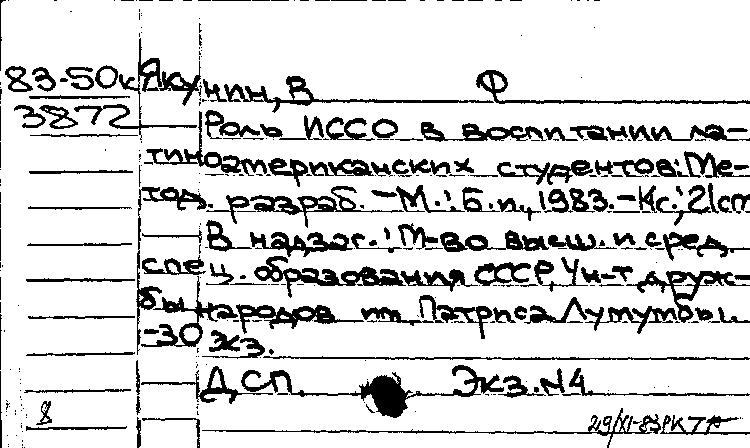 83-50к Якунин, В Ф
3872 Роль ИССО в воспитании ла-
тиноамериканских студентов: Ме-
тод. разраб. - М.: Б.и., 1983. - Кс.; 21cm
В надзаг.: М-во высш. и сред.
спец. образования СССР, Ун-т друж-
бы народов им. Патриса Лумумбы.
-30 экз.
ДСП. Экз. N4.
8 29/XI-83